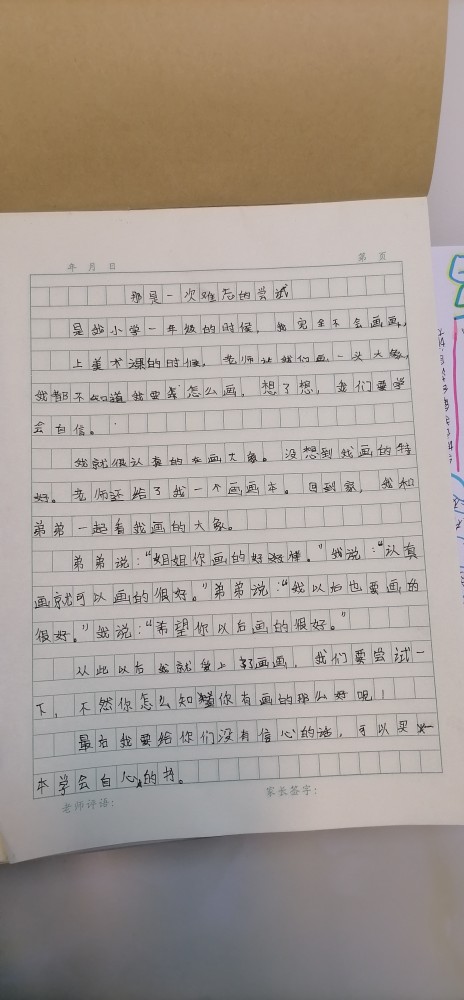 年 月 日 第 页
那是一次难忘的尝试
是我小学一年级的时候，我完全不会画画，
上美术课的时候，老师让我们画一头大象，
我都不知道我要怎么画，想了想，我们要学
会自信。
我就很认真的在画大象。没想到我画的特
好。老师还给了我一个画画本。回到家，我和
弟弟一起看我画的大象。
弟弟说：“姐姐你画的好好棒。”我说：“认真
画就可以画的很好。”弟弟说：“我以后也要画的
很好。”我说：“希望你以后画的很好。”
从此以后我就爱上了画画，我们要尝试一
下，不然你怎么知道你有画的那么好呢！
最后我要给你们没有信心的话，可以买一
本学会自心的书。
老师评语： 家长签字：